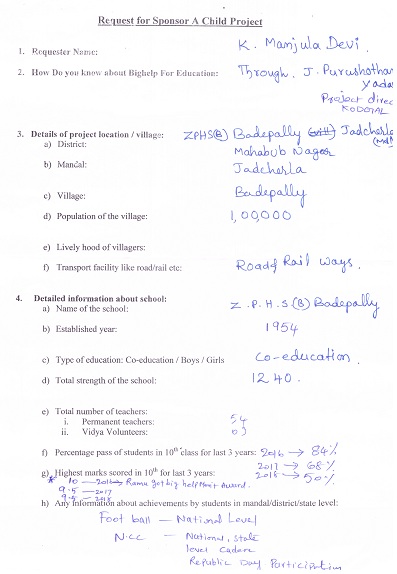 Request for Sponsor A Child Project
1. Requester Name: K. Manjula Devi.
2. How Do you know about Bighelp For Education: Through, J. Purushotham
Yadav
Project direc
KODGAL
3. Details of project location / village: ZPHS(B) Badepally Jadcherla
a) District: Mahabub Nagar (Mdl)
b) Mandal: Jadcherla
c) Village: Badepally
d) Population of the village: 1,00,000
e) Lively hood of villagers:
f) Transport facility like road/rail etc: Road & Rail ways.
4. Detailed information about school:
a) Name of the school: Z.P.H.S.(B) Badepally
b) Established year: 1954
c) Type of education: Co-education / Boys / Girls Co-education
d) Total strength of the school: 1240.
e) Total number of teachers:
i. Permanent teachers: 54
ii. Vidya Volunteers: 03
f) Percentage pass of students in 10th class for last 3 years: 2016 → 84%
2017 → 68%
g) Highest marks scored in 10th for last 3 years: 2018 → 50%
* 10 — 2016 → Rama got big help Merit Award.
9.5 — 2017
9.5 — 2018
h) Any Information about achievements by students in mandal/district/state level:
Foot ball — National Level
N.CC — National, State
level Cadore
Republic Day Participation